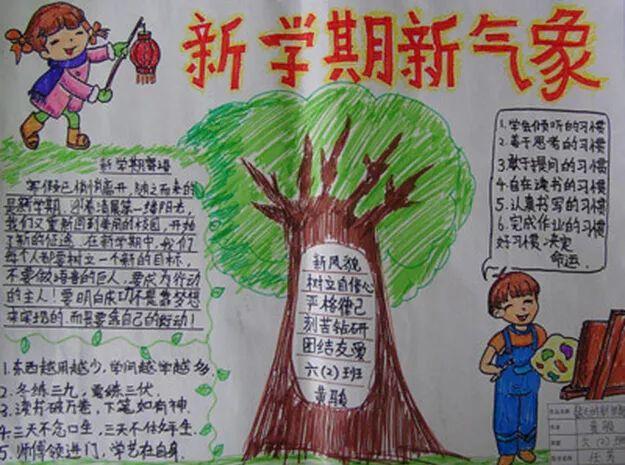 新学期新气象
新学期寄语
寒假已悄悄离开,随之而来的
是新学期。迎着清晨第一缕阳光,
我们又重新回到美丽的校园,开始
了新的征途。在新学期中,我们
每个人都要树立一个新的目标,
不要做语言的巨人,要成为行动
的主人!要明白成功不是靠梦想
来实现的,而是要靠自己的行动!
1.东西越用越少,学问越学越多。
2.冬练三九,夏练三伏。
3.读书破万卷,下笔如有神.
4.三天不念口生,三天不做手生。
5.师傅领进门,学艺在自身.
新风貌
树立自信心
严格律己
刻苦钻研
团结友爱
六(2)班
黄骏
1.学会倾听的习惯
2.善于思考的习惯
3.敢于提问的习惯
4.自在读书的习惯
5.认真书写的习惯
6.完成作业的习惯
好习惯,决定
命运.
作品名称
黄骏
六(2)班